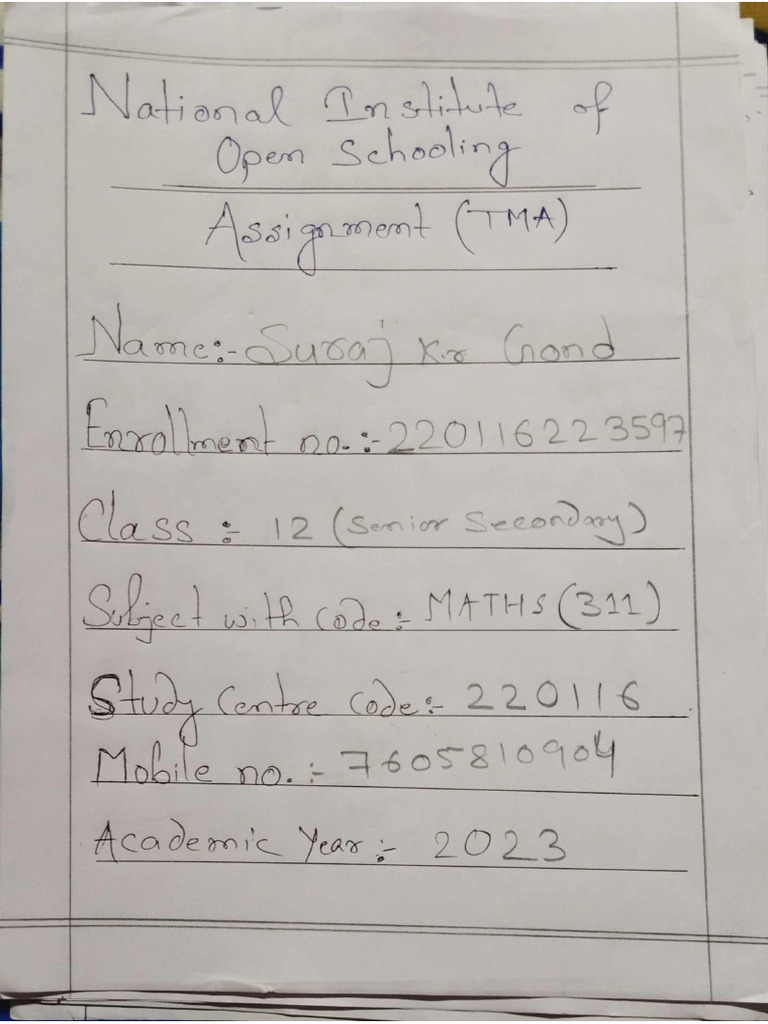 National Institute of
Open Schooling
Assignment (TMA)
Name:- Suraj Kr Gond
Enrollment no.:- 220116223597
Class :- 12 (Senior Secondary)
Subject with code:- MATHS (311)
Study Centre Code:- 220116
Mobile no. :- 7605810904
Academic Year :- 2023